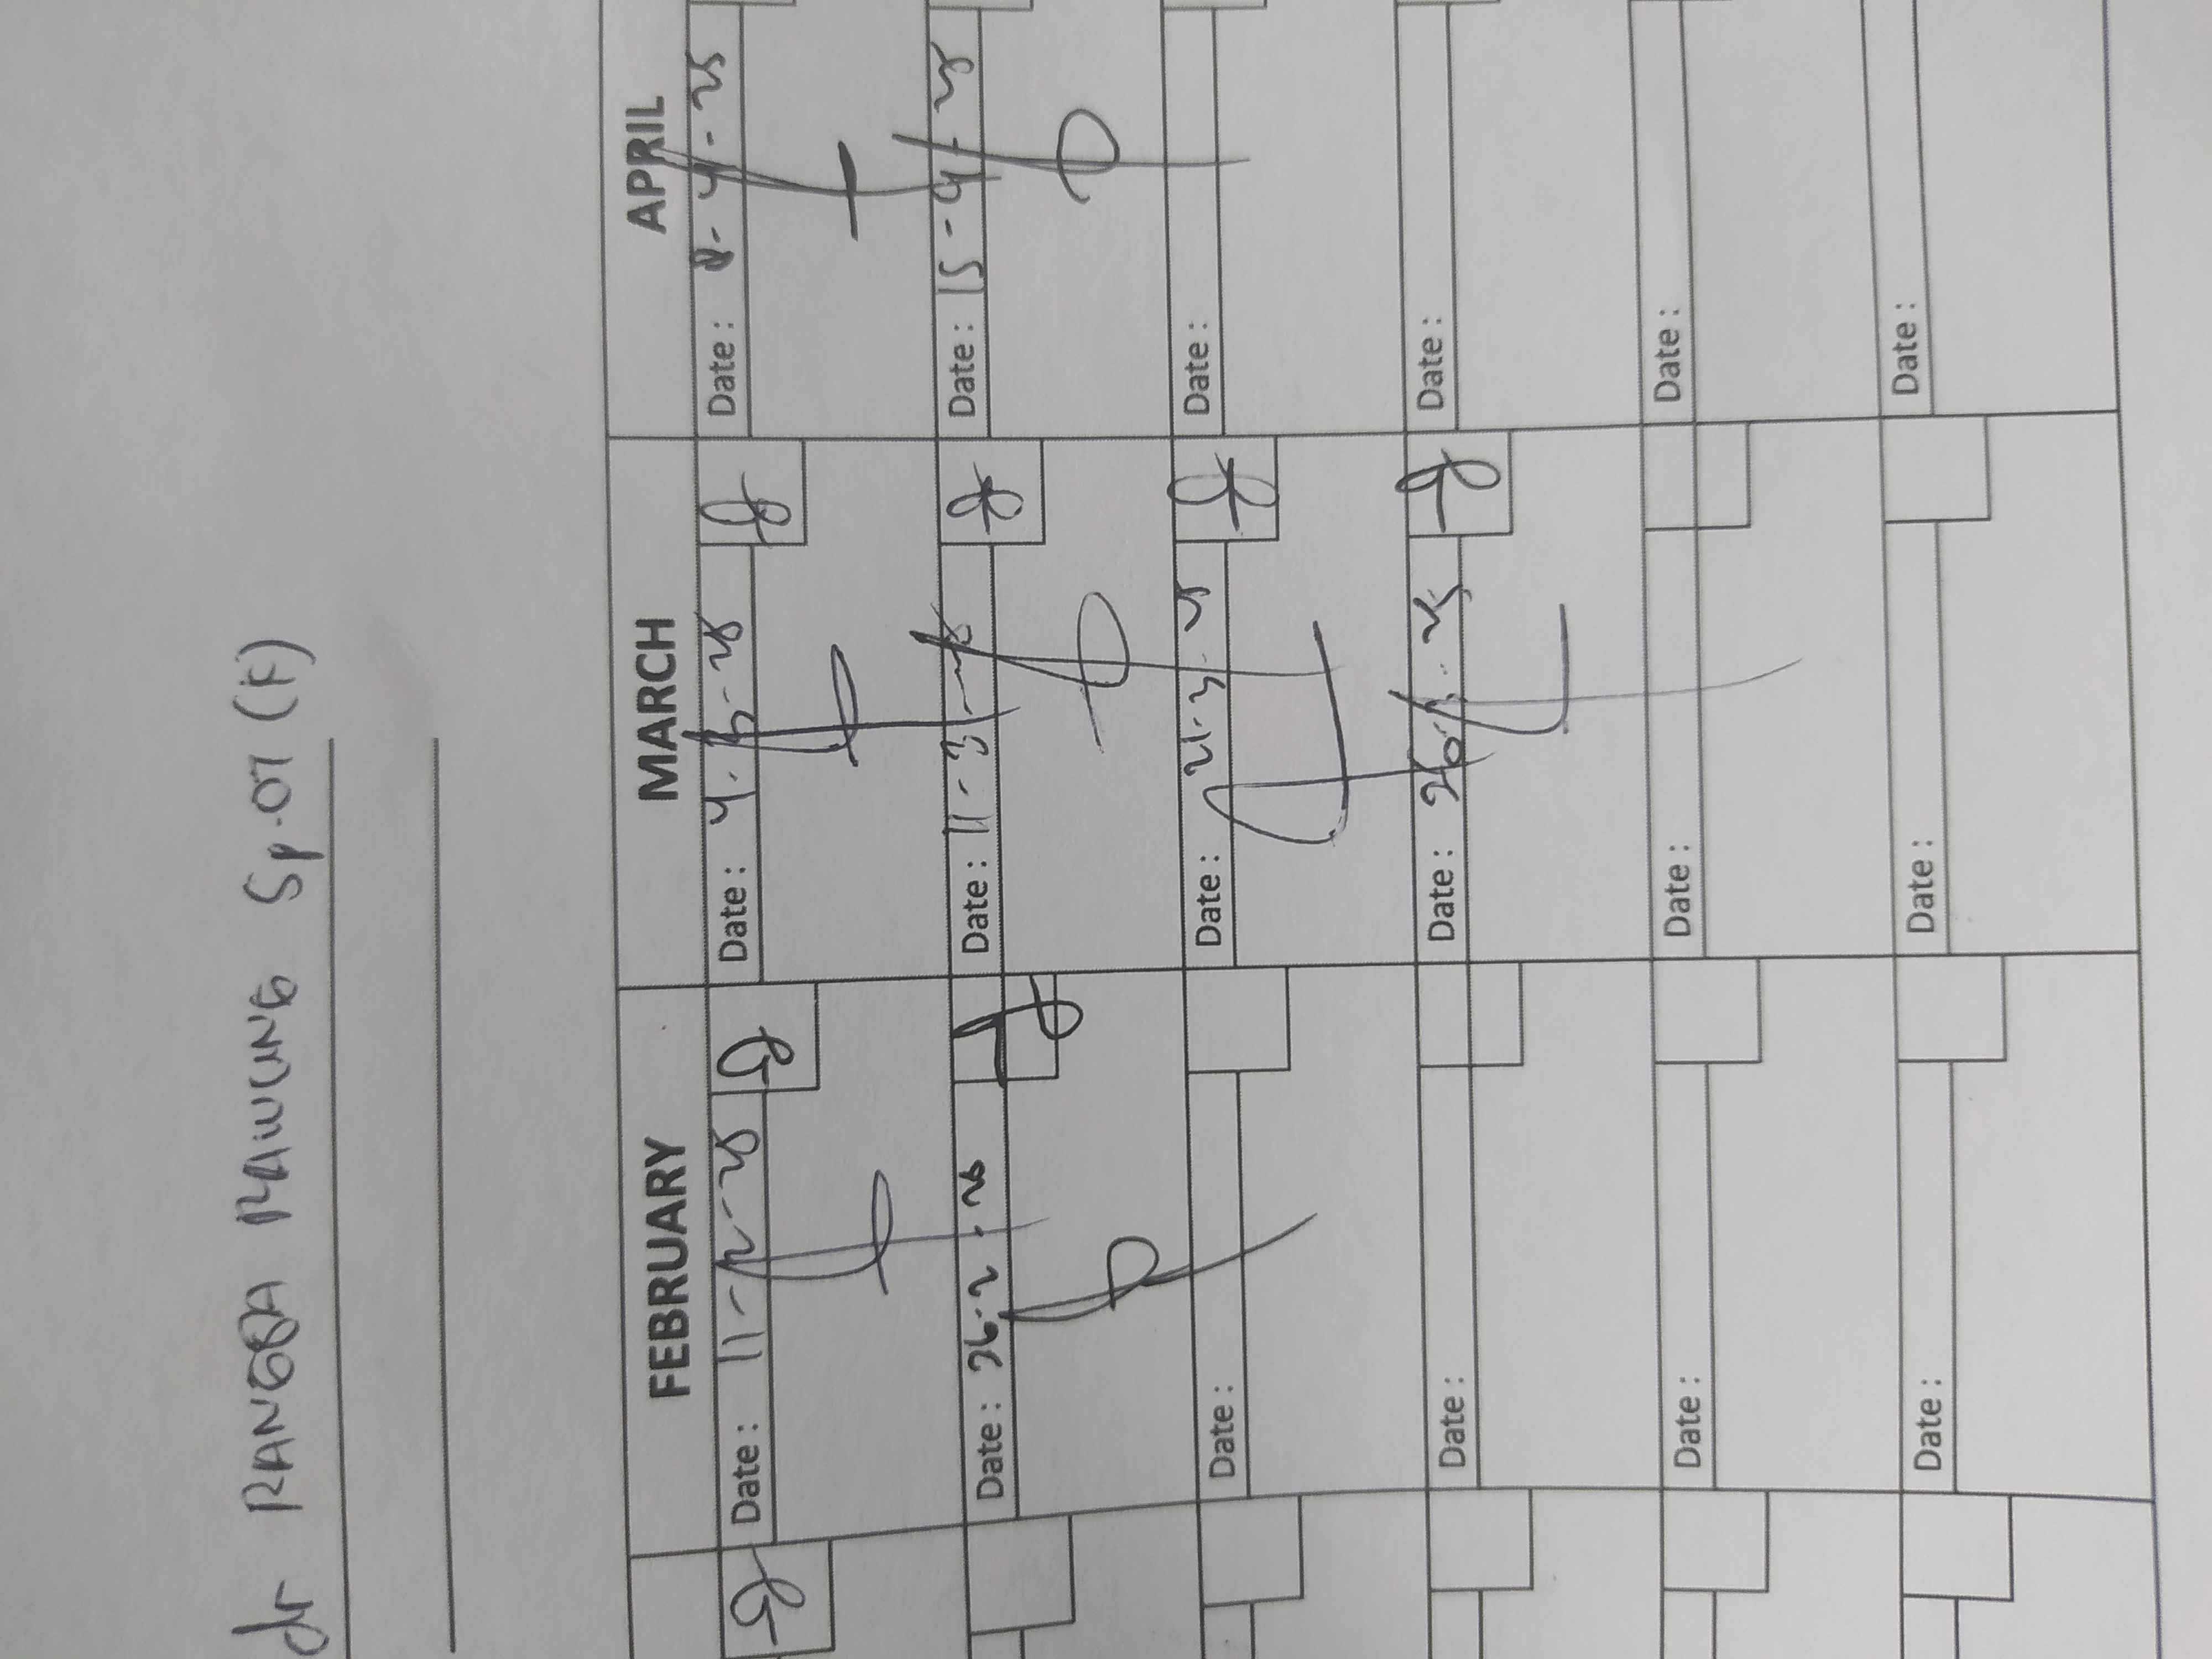 dr RANGGA RAWUNG Sp.OT (K)
FEBRUARY MARCH APRIL
Date: 11-2-25 Date: 4-3-25 Date: 8-4-25
Date: 26-2-25 Date: 11-3-25 Date: 15-4-25
Date: Date: 21-3-25 Date:
Date: Date: 26 Date:
Date: Date: Date:
Date: Date: Date: